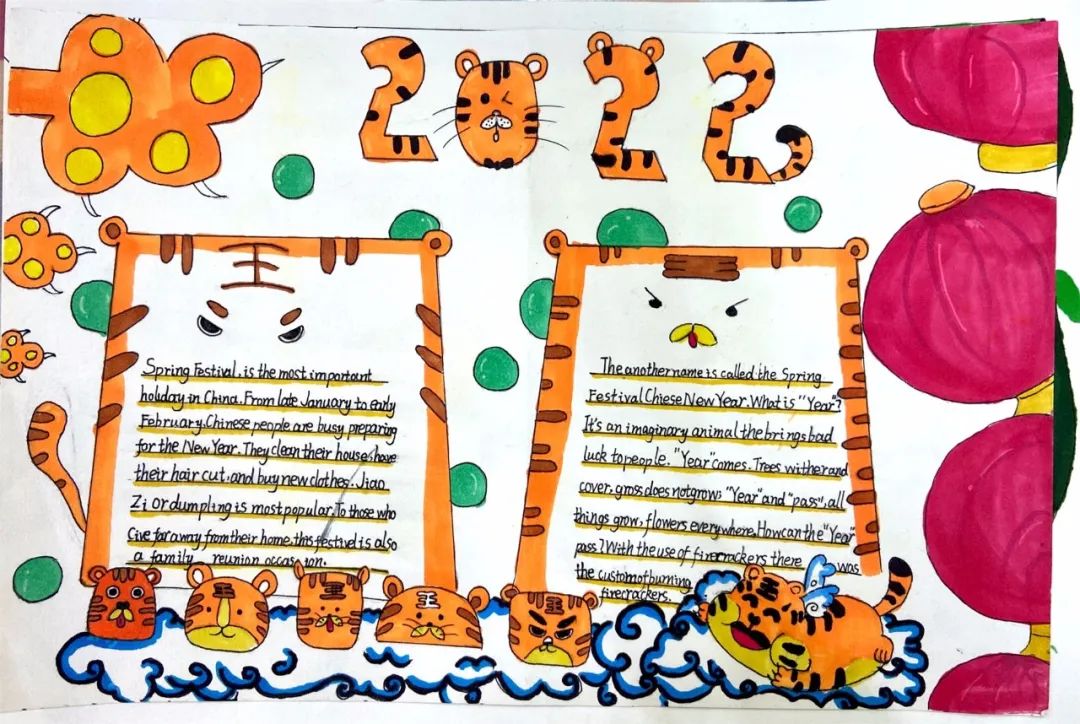 2022
王
Spring Festival. is the most important
holiday in China. From late January to early
February, Chinese people are busy preparing
for the New Year. They clean their house, have
their hair cut. and buy new clothes. Jiao
Zi Or dumpling is most popular. To those who
Give far away from their home, this festivel is also
a family reunion occasion.
The another name is called the Spring
Festival Chiese New Year. What is "Year"?
It's an imaginary animal the brings bad
luck to people. "Year" comes. Trees wither and
cover, grass does not grow; "Year" and "pass", all
things grow, flowers everywhere. How can the "Year"
pass? With the use of firecrackers there was
the custom of burning
firecrackers.
王
王
王
王
王